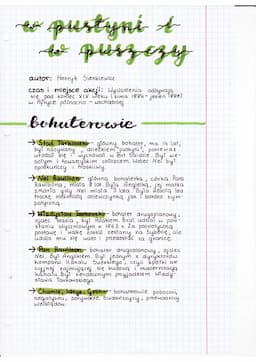 w pustyni i
w puszczy
autor: Henryk Sienkiewicz
czas i miejsce akcji: Wydarzenia odbywają
się pod koniec XIX wieku (zima 1884 - jesień 1885)
w Afryce północno - wschodniej
bohaterowie
→ Staś Tarkowski - główny bohater, ma 14 lat,
był nazywany „dzieckiem pustyni", ponieważ
urodził się i wychował w Port Saidzie. Był we-
sołym i towarzyskim chłopcem, wobec Nel był
opiekuńczy i troskliwy.
→ Nel Rawlison - główna bohaterka, córka Pana
Rawlisona, miała 8 lat. Była Angielką, jej matka
zmarła gdy Nel miała 3 lata. Była dzielną lecz
trochę nieśmiałą dziewczynką, jak i bardzo sym-
patyczną.
→ Władysław Tarkowski - bohater drugoplanowy,
ojciec Stasia, był Polakiem. Brał udział w pow-
staniu styczniowym w 1863 r. Za patriotyczną
postawę i walkę został zesłany na Sybir, ale
udało mu się uciec i przedostać za granicę.
→ Pan Rawlison - bohater drugoplanowy, ojciec
Nel. Był Anglikiem. Był jednym z dyrektorów
Kompanii Kanału Sueskiego, czyli spółki ak-
cyjnej zajmującej się budową i modernizacją
kanału. Był serdecznym przyjacielem Włady-
sława Tarkowskiego.
→ Chamis, Idrys, Gebhr - bohaterowie poboczni,
negatywni, porywacze, Sudańczycy, przewodnicy
wielbłądów.